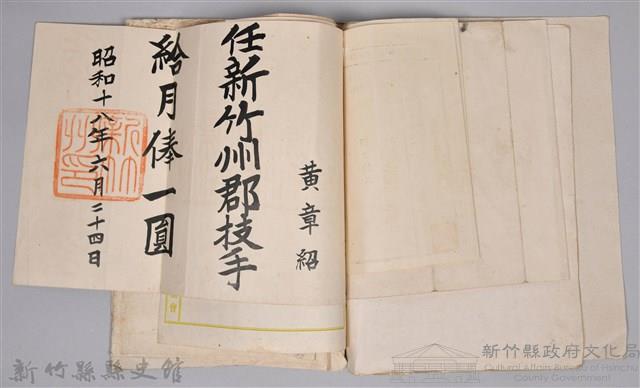 黄章紹
任新竹州郡技手
給月俸一圓
昭和十八年六月二十四日
新竹州印
會
新竹縣縣史館
新竹縣政府文化局
Cultural Affairs Bureau of Hsinchu
County Government